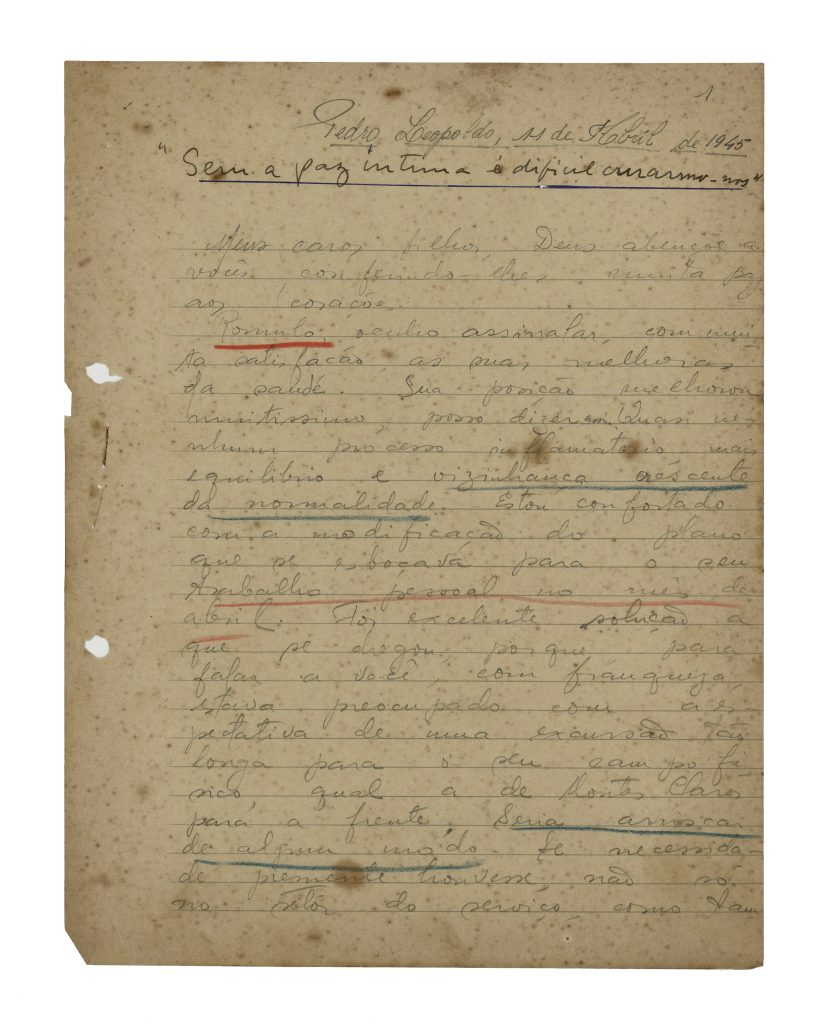 1.
Pedro Leopoldo, 11 de Abril de 1945
"Sem a paz intima é dificil curarmo-nos"
Meus caros filhos, Deus abençôe a
vocês, conferindo-lhes muita paz
aos corações.
Romulo, venho assinalar, com mui-
ta satisfação, as suas melhoras
da saúde. Sua posição melhorou
muitissimo, posso dizer assim. Quasi ne-
nhum processo inflamatorio, mais
equilibrio e vizinhança crescente
da normalidade. Estou confortado
com a modificação do plano
que se esboçava para o seu
trabalho pessoal no mês de
abril. Foi excelente solução a
que se chegou, porque, para
falar a você, com franqueza,
estava preocupado com a es-
petativa de uma excursão tão
longa para o seu campo fi-
sico, qual a de Montes Claros
para a frente. Seria arriscar
de algum modo. Se necessida-
de premente houvesse, não só
no setôr do serviço, como tam